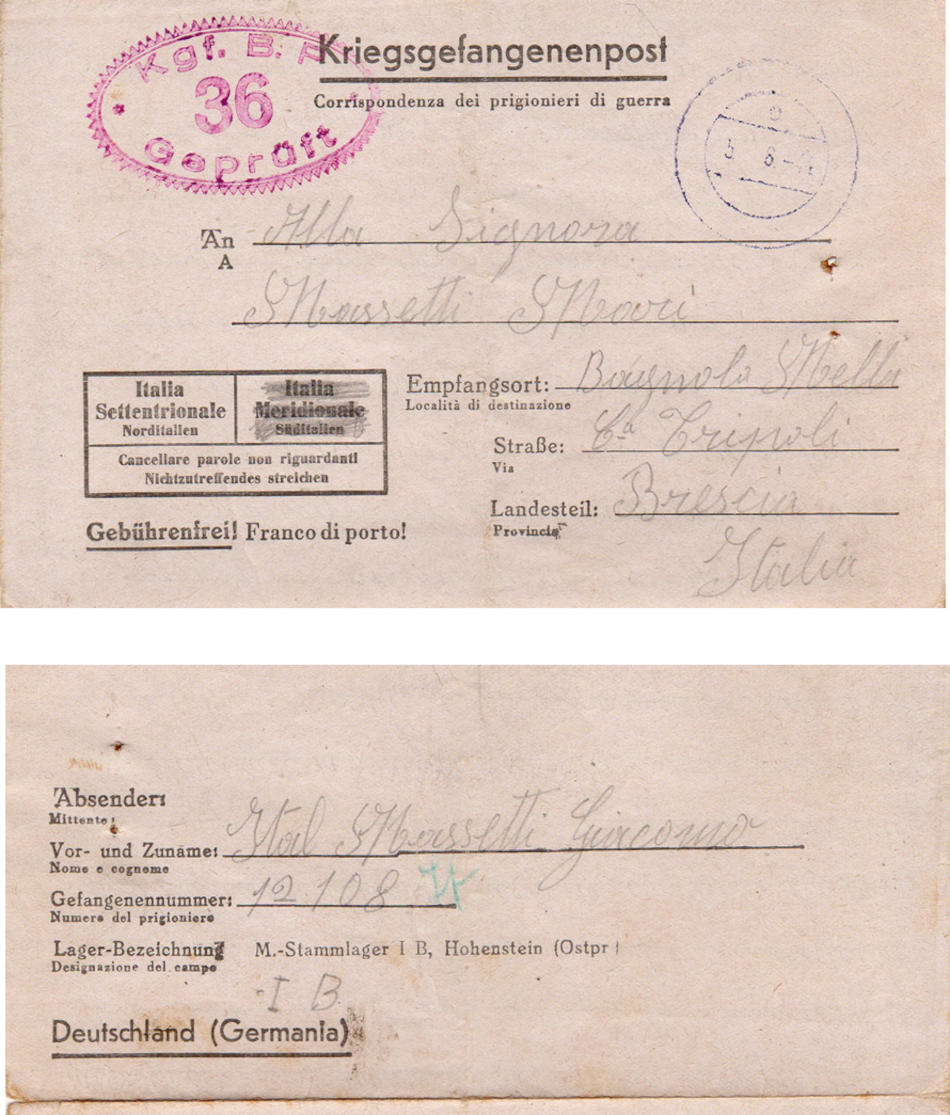 Kgf. B. P
36
Geprüft
Kriegsgefangenenpost
Corrispondenza dei prigionieri di guerra
An Alla Signora
A
Massetti Mari
Italia Settentrionale
Norditalien
Italia Meridionale
Süditalien
Cancellare parole non riguardanti
Nichtzutreffendes streichen
Gebührenfrei! Franco di porto!
Empfangsort: Bagnolo Mella
Località di destinazione
Straße: Ca Tripoli
Via
Landesteil: Brescia
Provincia
Italia
Absender:
Mittente:
Vor- und Zuname: Ital Massetti Giacomo
Nome e cognome
Gefangenennummer: 12108
Numero del prigioniero
Lager-Bezeichnung M.-Stammlager I B, Hohenstein (Ostpr
Designazione del campo
I B
Deutschland (Germania)